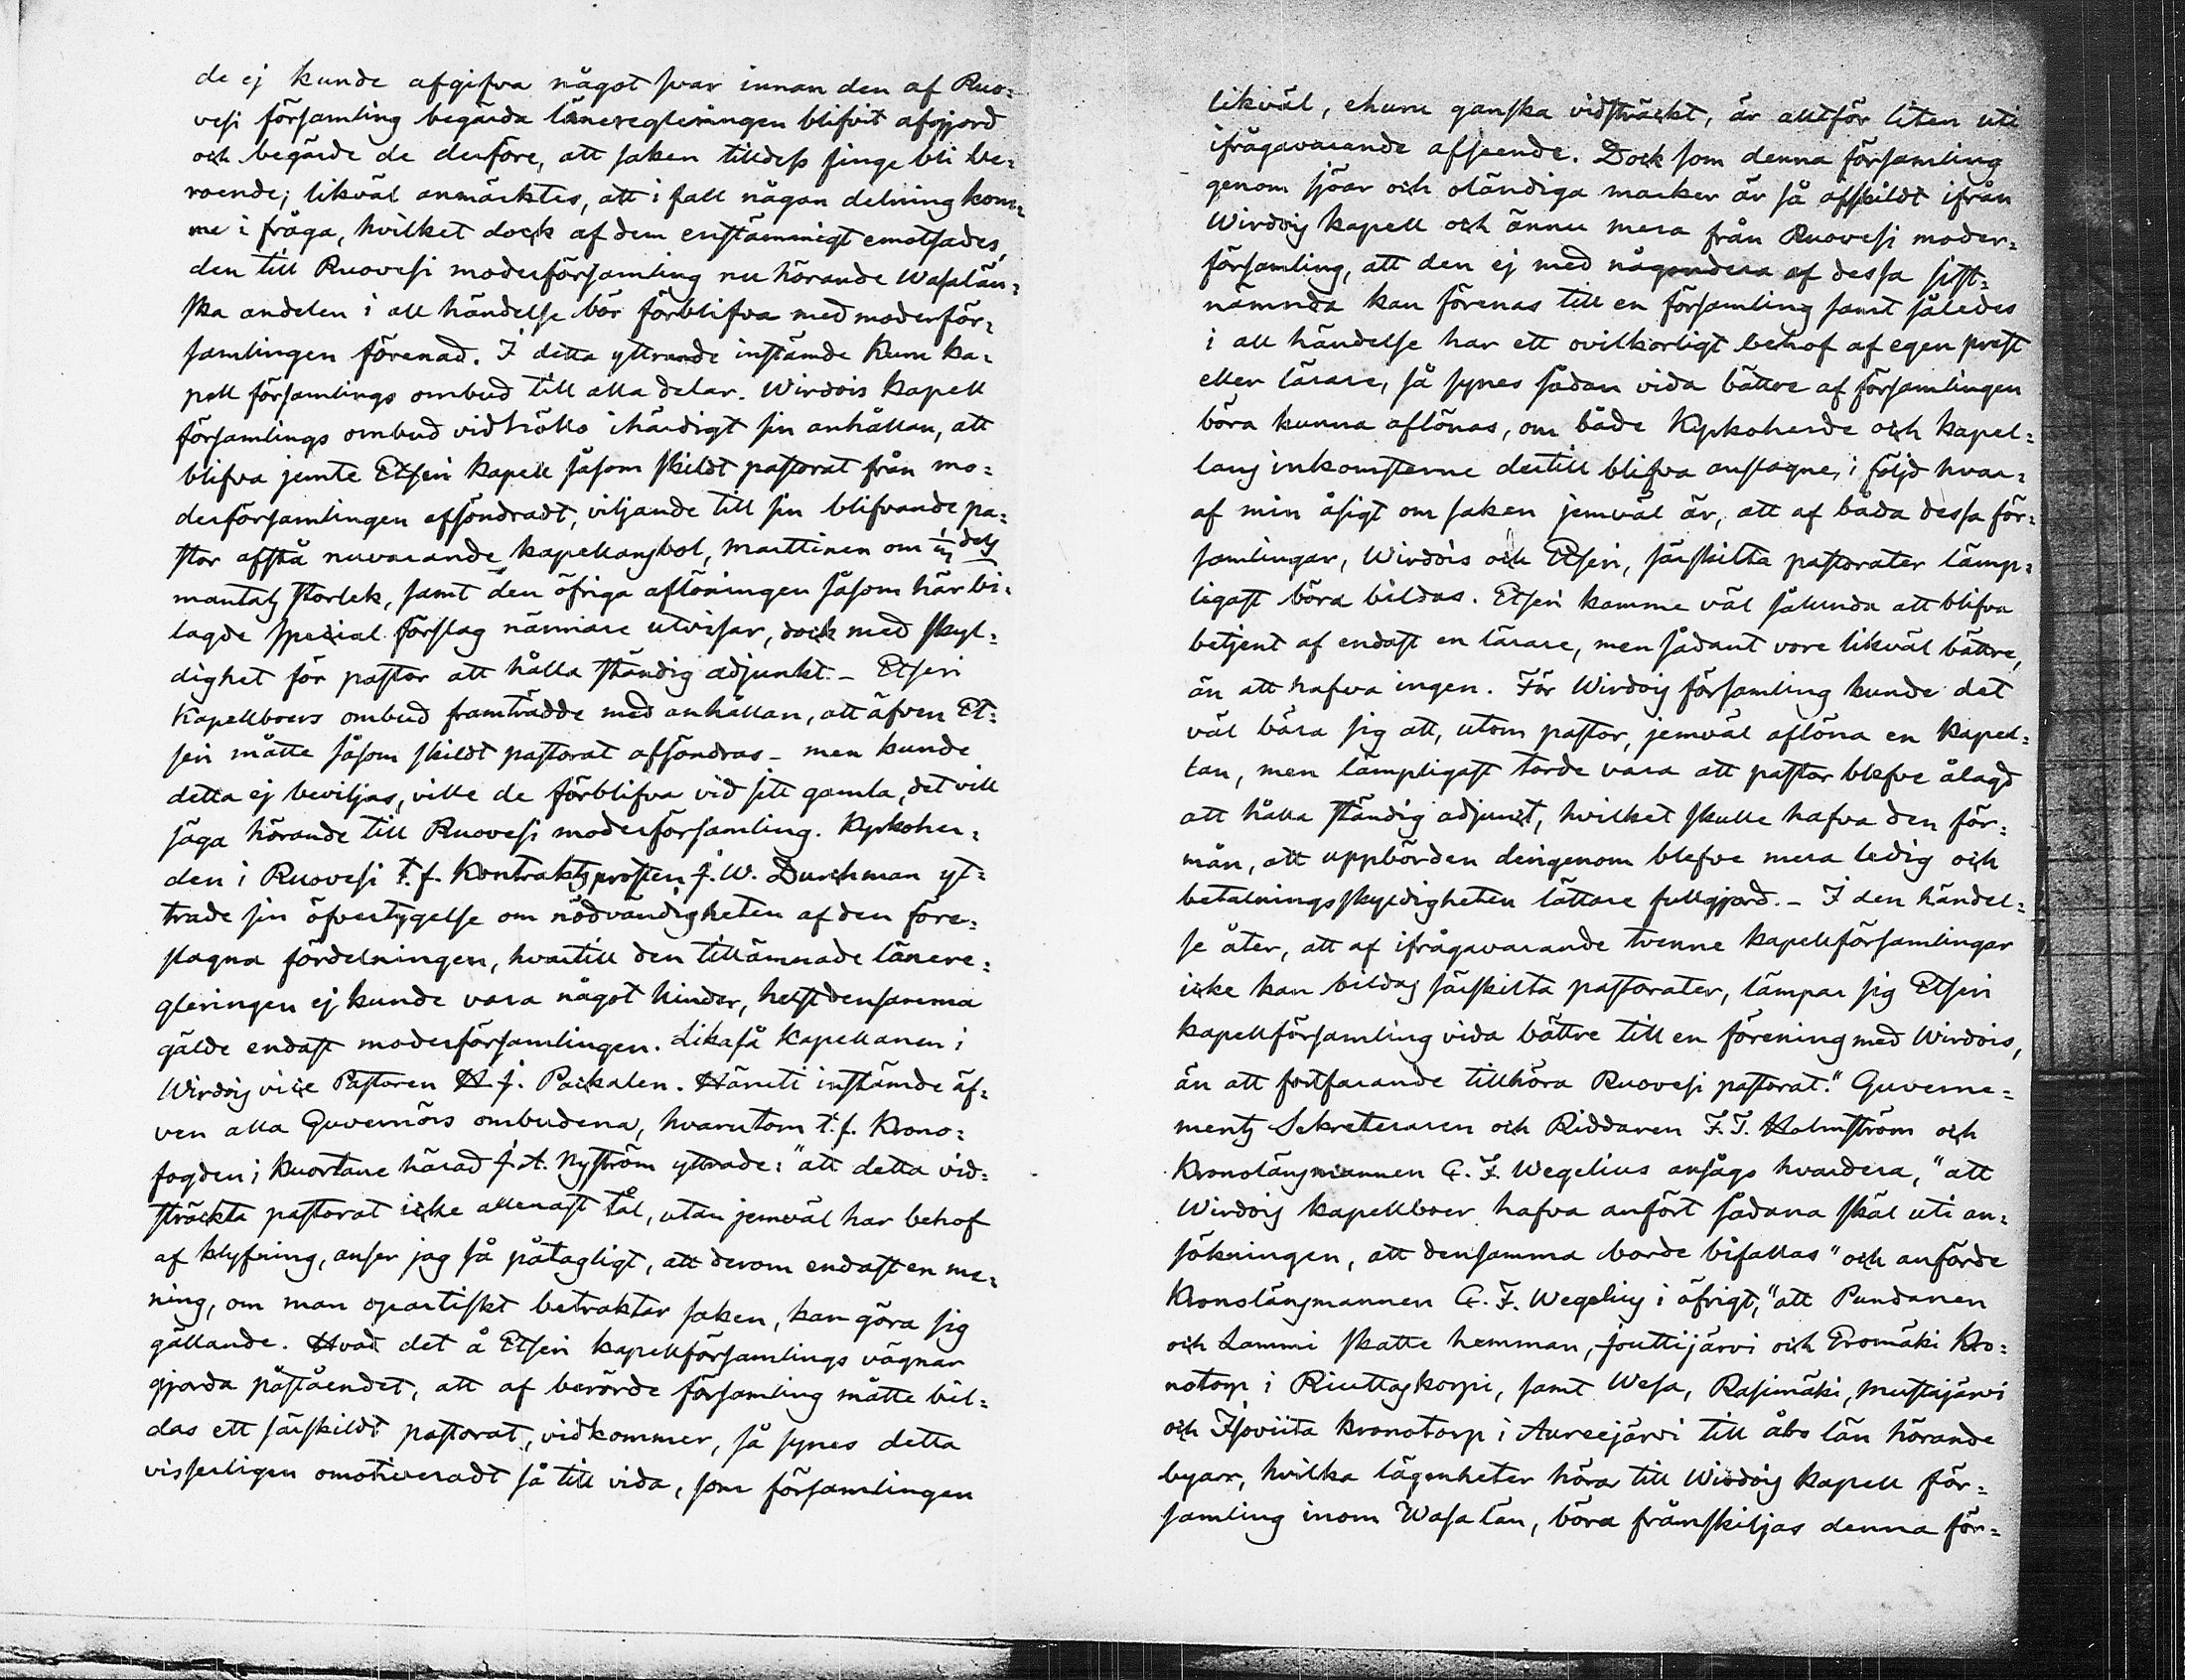 de ej kunde afgifva något svar innan den af Ruo=
vesi församling begärda läneregleringen blifvit afgjord
och begärde de derföre, att saken tilldess finge bli be=
roende; likväl anmärktes, att i fall någon delning kom=
me i fråga, hvilket dock af dem enstämmigt emotsades,
den till Ruovesi moderförsamling nu hörande Wasalän=
ska andelen i all händelse bör förblifva med moderför=
samlingen förenad. I detta yttrande instämde Kuru ka=
pell församlings ombud till alla delar. Wirdois kapell
församlings ombud vidhöllo ihärdigt sin anhållan, att
blifva jemte Etseri kapell såsom skildt pastorat från mo=
derförsamlingen afsöndradt, viljande till sin blifvande pa=
stor afstå nuvarande kapellansbol, Marttinen om dels
mantals storlek, samt den öfriga aflöningen såsom här bi=
lagde special förslag närmare utvisar, dock med skyl=
dighet för pastor att hålla ständig adjunkt. – Etseri
Kapellboers ombud framträdde med anhållan, att äfven Et=
seri måtte såsom skildt pastorat afsöndras – men kunde
detta ej beviljas, ville de förblifva vid sitt gamla, det vill
säga hörande till Ruovesi moderförsamling. Kyrkoher=
den i Ruovesi t.f. Kontraktsprosten J. W. Durchman yt=
trade sin öfvertygelse om nödvändigheten af den före=
slagna fördelningen, hvartill den tillämnade länere=
gleringen ej kunde vara något hinder, helst densamma
gälde endast moderförsamlingen. Likaså Kapellanen i
Wirdois vice Pastoren H. J. Packalen. Häruti instämde äf=
ven alla Guvernörs ombudena, hvarutom t.f. Krono=
fogden i Kuortane härad J. A. Nyström yttrade: "att detta vid=
sträckta pastorat icke allenast tål, utan jemväl har behof
af klyfning, anser jag så påtagligt, att derom endast en me=
ning, om man opartiskt betraktar saken, kan göra sig
gällande. Hvad det å Etseri kapellförsamlings vägnar
gjorda påståendet, att af berörde församling måtte bil=
das ett särskildt pastorat, vidkommer, så synes detta
visserligen omotiveradt så till vida, som församlingen
likväl, ehuru ganska vidsträckt, är alltför liten uti
ifrågavarande afseende. Dock som denna församling
genom sjöar och oländiga marker är så afskildt ifrån
Wirdois kapell och ännu mera från Ruovesi moder=
församling, att den ej med någondera af dessa sist=
nämnda kan förenas till en församling samt således
i all händelse har ett ovilkorligt behof af egen prest
eller lärare, så synes sådan vida bättre af församlingen
böra kunna aflönas, om både Kyrkoherde och kapel=
lans inkomsterne dertill blifva anslagne, i följd hvar=
af min åsigt om saken jemväl är, att af båda dessa för=
samlingar, Wirdois och Etseri, särskilta pastorater lämp=
ligast böra bildas. Etseri komme väl sålunda att blifva
betjent af endast en lärare, men sådant vore likväl bättre,
än att hafva ingen. För Wirdois församling kunde det
väl bära sig att, utom pastor, jemväl aflöna en kapel=
lan, men lämpligast torde vara att pastor blefve ålagd
att hålla ständig adjunct, hvilket skulle hafva den för=
mån, att uppbörden derigenom blefve mera ledig och
betalningsskyldigheten lättare fullgjord. – I den händel=
se åter, att af ifrågavarande tvenne kapellförsamlingar
icke kan bildas särskilta pastorater, lämpar sig Etseri
kapellförsamling vida bättre till en förening med Wirdois,
än att fortfarande tillhöra Ruovesi pastorat." Guverne=
ments Sekreteraren och Riddaren F. T. Holmström och
Kronolänsmannen G. F. Wegelius ansågo hvardera, "att
Wirdois kapellboer hafva anfört sådana skäl uti an=
sökningen, att densamma borde bifallas" och anförde
Kronolänsmannen G. F. Wegelius i öfrigt, "att Pundanen
och Lammi skatte hemman, Jouttijärvi och Eromäki Kro=
notorp i Riuttaskorpi, samt Wesa, Rasimäki, Mustajärvi
och Isoviita Kronotorp i Aureejärvi till Åbo län hörande
byar, hvilka lägenheter höra till Wirdois kapell för=
samling inom Wasa län, böra frånskiljas denna för=